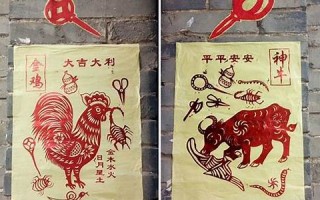 金鸡
大吉大利
金木水火
日月星土
平平安安
神牛